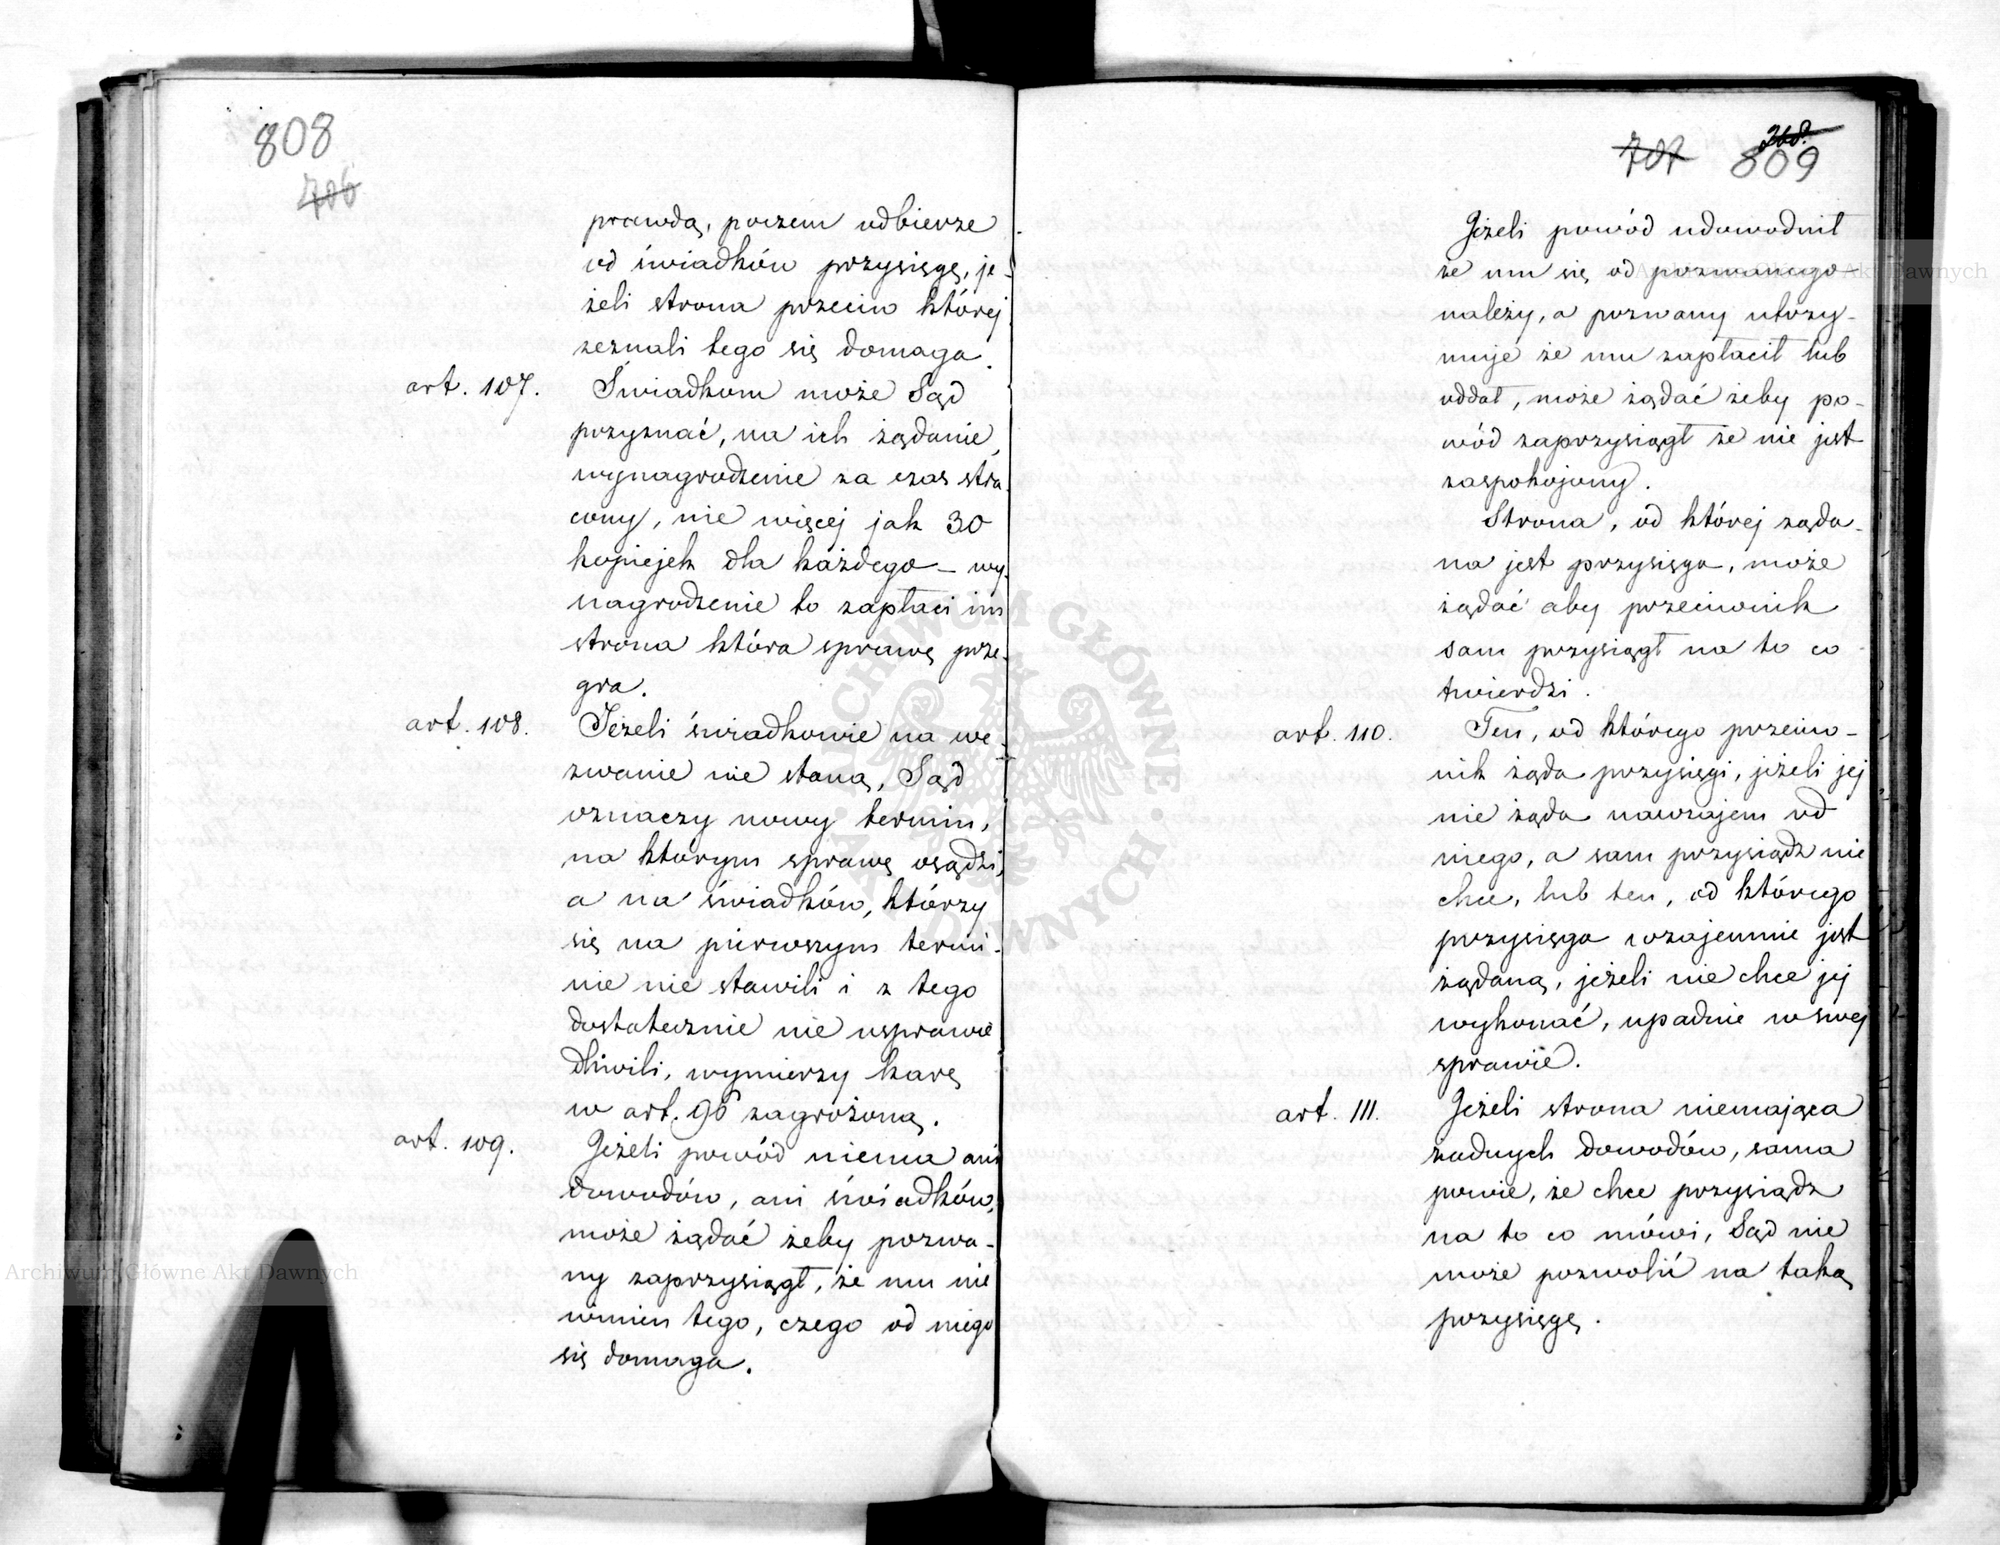 808
706
prawdą, poczem odbierze
od świadków przysięgę, je-
żeli strona przeciw której
zeznali tego się domaga.
art. 107. Świadkom może Sąd
przyznać, na ich żądanie,
wynagrodzenie za czas stra-
cony, nie więcej jak 30
kopiejek dla każdego — wy-
nagrodzenie to zapłaci im
strona która sprawę prze-
gra.
art. 108. Jeżeli świadkowie na we-
zwanie nie staną, Sąd
oznaczy nowy termin,
na którym sprawę osądzi,
a na świadków, którzy
się na pierwszym termi-
nie nie stawili i z tego
dostatecznie nie usprawie
dliwili, wymierzy karę
w art. 96 zagrożoną.
art. 109. Jeżeli powód niema ani
dowodów, ani świadków,
może żądać żeby pozwa-
ny zaprzysiągł, że mu nie
winien tego, czego od niego
się domaga.
707 368. 809
Jeżeli powód udowodnił
że mu się od pozwanego
należy, a pozwany utrzy-
muje że mu zapłacił lub
oddał, może żądać żeby po-
wód zaprzysiągł że nie jest
zaspokojony.
Strona, od której żąda-
na jest przysięga, może
żądać aby przeciwnik
sam przysiągł na to co
twierdzi.
art. 110. Ten, od którego przeciw-
nik żąda przysięgi, jeżeli jej
nie żąda nawzajem od
niego, a sam przysiądz nie
chce, lub ten, od którego
przysięga wzajemnie jest
żądaną, jeżeli nie chce jej
wykonać, upadnie w swej
sprawie.
art. 111. Jeżeli strona niemająca
żadnych dowodów, sama
powie, że chce przysiądz
na to co mówi, Sąd nie
może pozwolić na taką
przysięgę.
Archiwum Główne Akt Dawnych
Archiwum Główne Akt Dawnych
ARCHIWUM GŁÓWNE AKT DAWNYCH